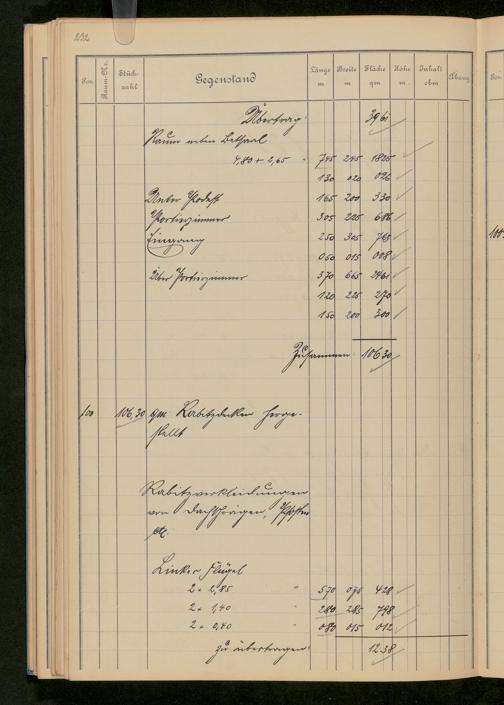 232
Pos. Raum-No. Stückzahl Gegenstand Länge m Breite m Fläche qm Höhe m Inhalt cbm Abzug
Übertrag 39 61
Raum neben Betsaal
4,80 + 2,65 7 45 2 45 18 25
1 30 0 20 0 26
Unter Podest 1 65 2 00 3 30
Portierzimmer 3 05 2 25 6 86
Eingang 2 50 3 05 7 63
0 50 0 15 0 08
Über Portierzimmer 3 70 6 65 24 61
1 20 2 25 2 70
1 50 2 00 3 00
Zusammen 106 30
100 106,30 qm Rabitzdecken herge-
stellt
Rabitzverkleidungen
von Dachschrägen, Pfosten
etc.
Linker Flügel
2 × 2,85 5 70 0 75 4 28
2 × 1,40 2 80 2 85 7 98
2 × 0,40 0 80 0 15 0 12
zu übertragen 12 38